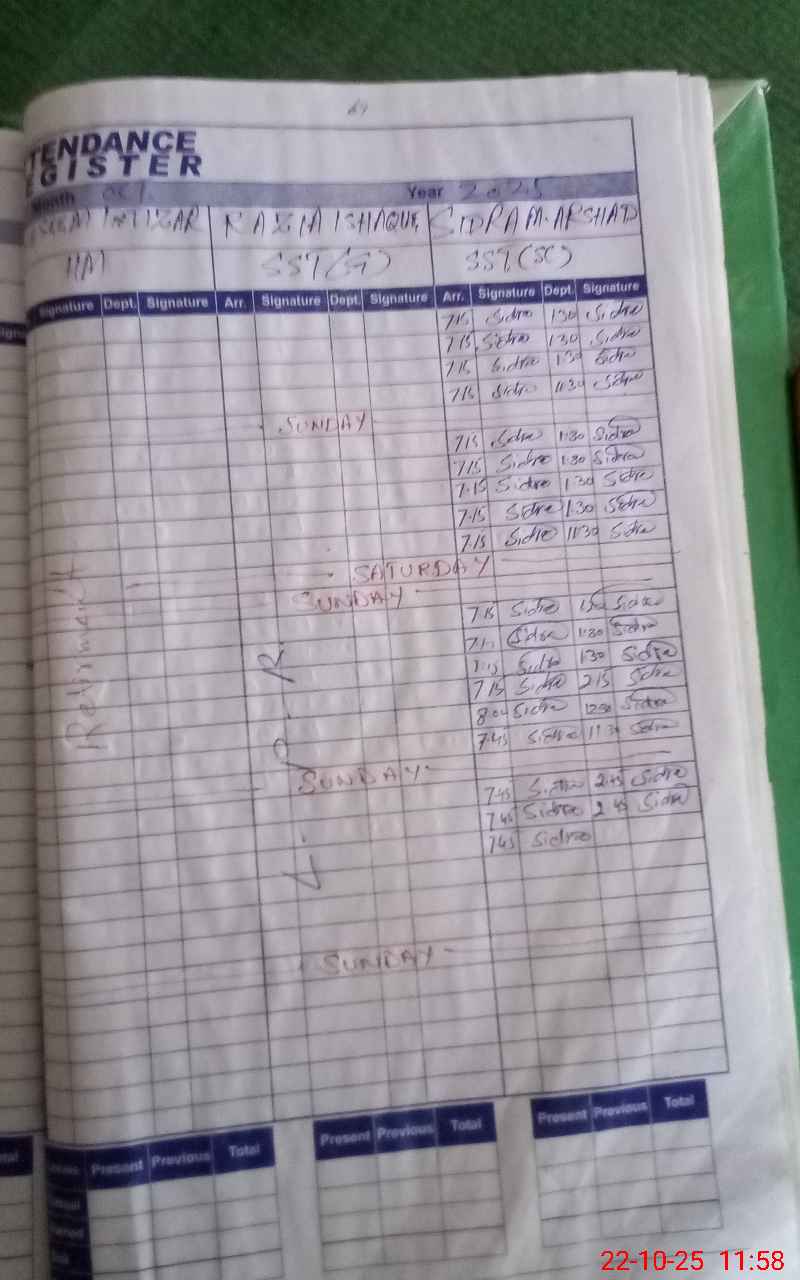 64
TENDANCE
EGISTER
Month Oct Year 2025
INTIZAR RAZIA ISHAQUE SIDRA M. ARSHAD
SST(G) SST(SC)
Signature Dept. Signature Arr. Signature Dept. Signature Arr. Signature Dept. Signature
7.15 Sidra 1:30 Sidra
7.15 Sidra 1:30 Sidra
7.15 Sidra 1:30 Sidra
7.15 Sidra 11:30 Sidra
SUNDAY
7.15 Sidra 1:30 Sidra
7.15 Sidra 1:30 Sidra
7.15 Sidra 1:30 Sidra
7.15 Sidra 1:30 Sidra
7.15 Sidra 11:30 Sidra
SATURDAY
SUNDAY
7.15 Sidra Sidra
Sidra 1:30 Sidra
7.15 Sidra 1:30 Sidra
7.15 Sidra 2.15 Sidra
8.00 Sidra Sidra
7.45 Sidra 11:30 Sidra
SUNDAY
7.45 Sidra 2.45 Sidra
7.45 Sidra 2.45 Sidra
7.45 Sidra
SUNDAY
Present Previous Total Present Previous Total Present Previous Total
22-10-25 11:58